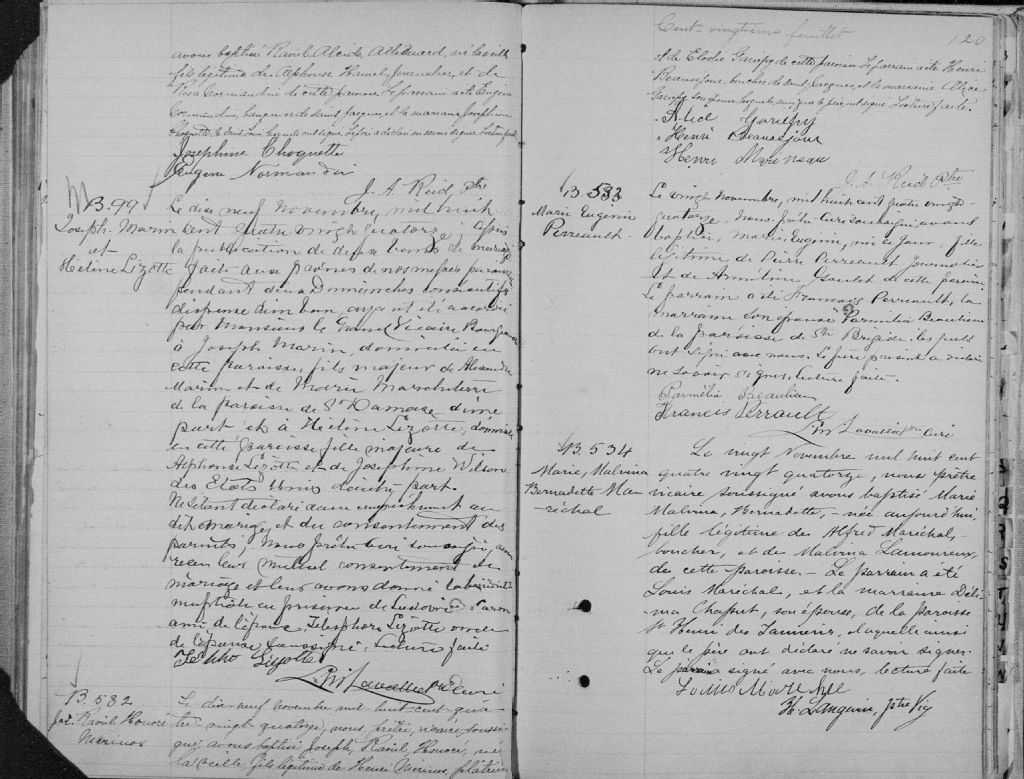 avons baptisé Raoul
fils légitime de Alphonse Hamel, Journalier, et de
Rosa Normandin de cette paroisse. Le parrain a été Eugène
Normandin, et la marraine Joséphine
Choquette
Josephine Choquette
Eugene Normandin
J. A. Reid Ptre
M. 99
Joseph Marin
et
Hélène Lizotte
Le dix neuf Novembre, mil huit
cent quatre vingt quatorze, après
la publication de deux bans de mariage
faite aux prônes de nos messes paroissiales
pendant deux Dimanches consécutifs
dispense d'un ban, ayant été accordée
par Monsieur le Grand Vicaire Bourgeault
à Joseph Marin, domicilié en
cette paroisse, fils majeur de Alexandre
Marin et de Marie
de la paroisse de St Damase d'une
part et à Hélène Lizotte, domiciliée
en cette paroisse fille majeure de
Alphonse Lizotte et de Josephine Wilson
des Etats Unis d'autre part.
Ne s'étant déclaré aucun empêchement au
dit mariage, et du consentement des
parents, Nous prêtre curé soussigné, avons
reçu leur mutuel consentement de
mariage et leur avons donné la bénédiction
nuptiale en présence de Ludovic
ami de l'époux, Telesphore Lizotte oncle
de l'épouse soussigné, Lecture faite
Lizotte
Lavallée Ptre Curé
B. 532
Jos. Raoul Honoré
Merinos
Le dix-neuf novembre mil huit cent qua-
tre-vingt-quatorze, nous, prêtre, vicaire, soussi-
gné, avons baptisé Joseph, Raoul, Honoré, né
la veille fils légitime de Henri Merinos, plâtrier,
Cent-vingtième feuillet
120
et de Elodie Gariépy de cette paroisse. Le parrain a été Henri
Beausejour boucher de Saint-Jacques, et la marraine Alice
Gariépy, soussignés, ainsi que le père ont signé. Lecture faite.
Alice Gariepy
Henri Beausejour
Henri Marineau
J. A. Reid Ptre
B. 533
Marie Eugénie
Perreault
Le vingt Novembre, mil huit cent quatre vingt-
quatorze, Nous, Ptre curé soussigné, avons
baptisé, Marie, Eugénie, née ce jour, fille
légitime de Pierre Perreault Journalier
et de Arméline Goulet de cette paroisse.
Le parrain a été François Perreault, la
marraine son épouse Parmélia Beaulieu
de la paroisse de Ste Brigide, lesquels
ont signé avec nous. Le père présent a déclaré
ne savoir signer, Lecture faite.
Parmélia Beaulieu
Francis Perrault
Lavallée Ptre Curé
B. 534
Marie, Malvina
Bernadette Ma-
-réchal
Le vingt Novembre mil huit cent
quatre vingt quatorze, nous prêtre
vicaire soussigné avons baptisé Marie
Malvina, Bernadette, - née aujourd'hui,
fille légitime des Alfred Maréchal,
boucher, et de Malvina Lamoureux,
de cette paroisse. - Le parrain a été
Louis Maréchal, et la marraine Déli-
ma Chaput, son épouse, de la paroisse
St Henri des Tanneries, laquelle ainsi
que le père ont déclaré ne savoir signer.
Le parrain signé avec nous, lecture faite
Louis Marechal
H. Langevin, Ptre Vic